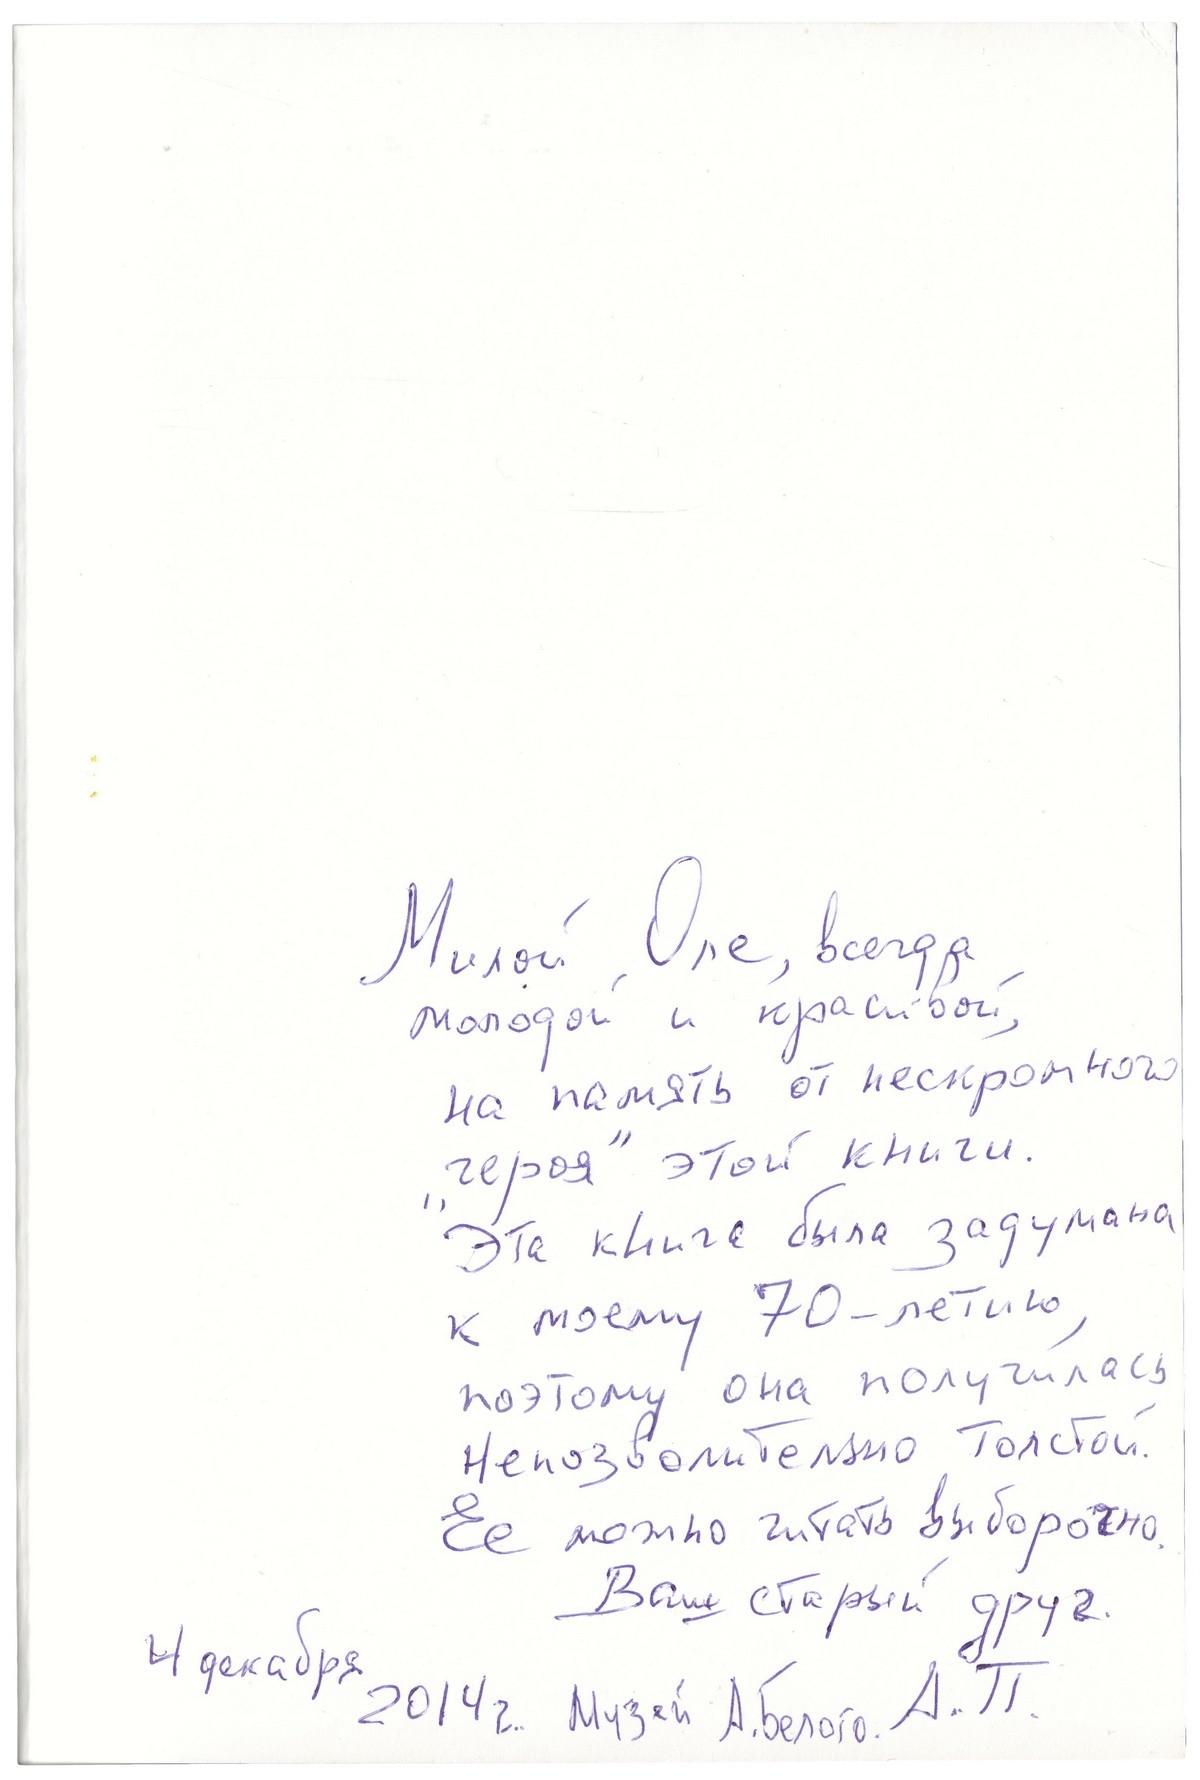 Милой Оле, всегда
молодой и красивой,
на память от нескромного
„героя” этой книги.
Эта книга была задумана
к моему 70-летию,
поэтому она получилась
непозволительно толстой.
Ее можно читать выборочно.
Ваш старый друг.
4 декабря
2014 г. Музей А.Белого. А.П.